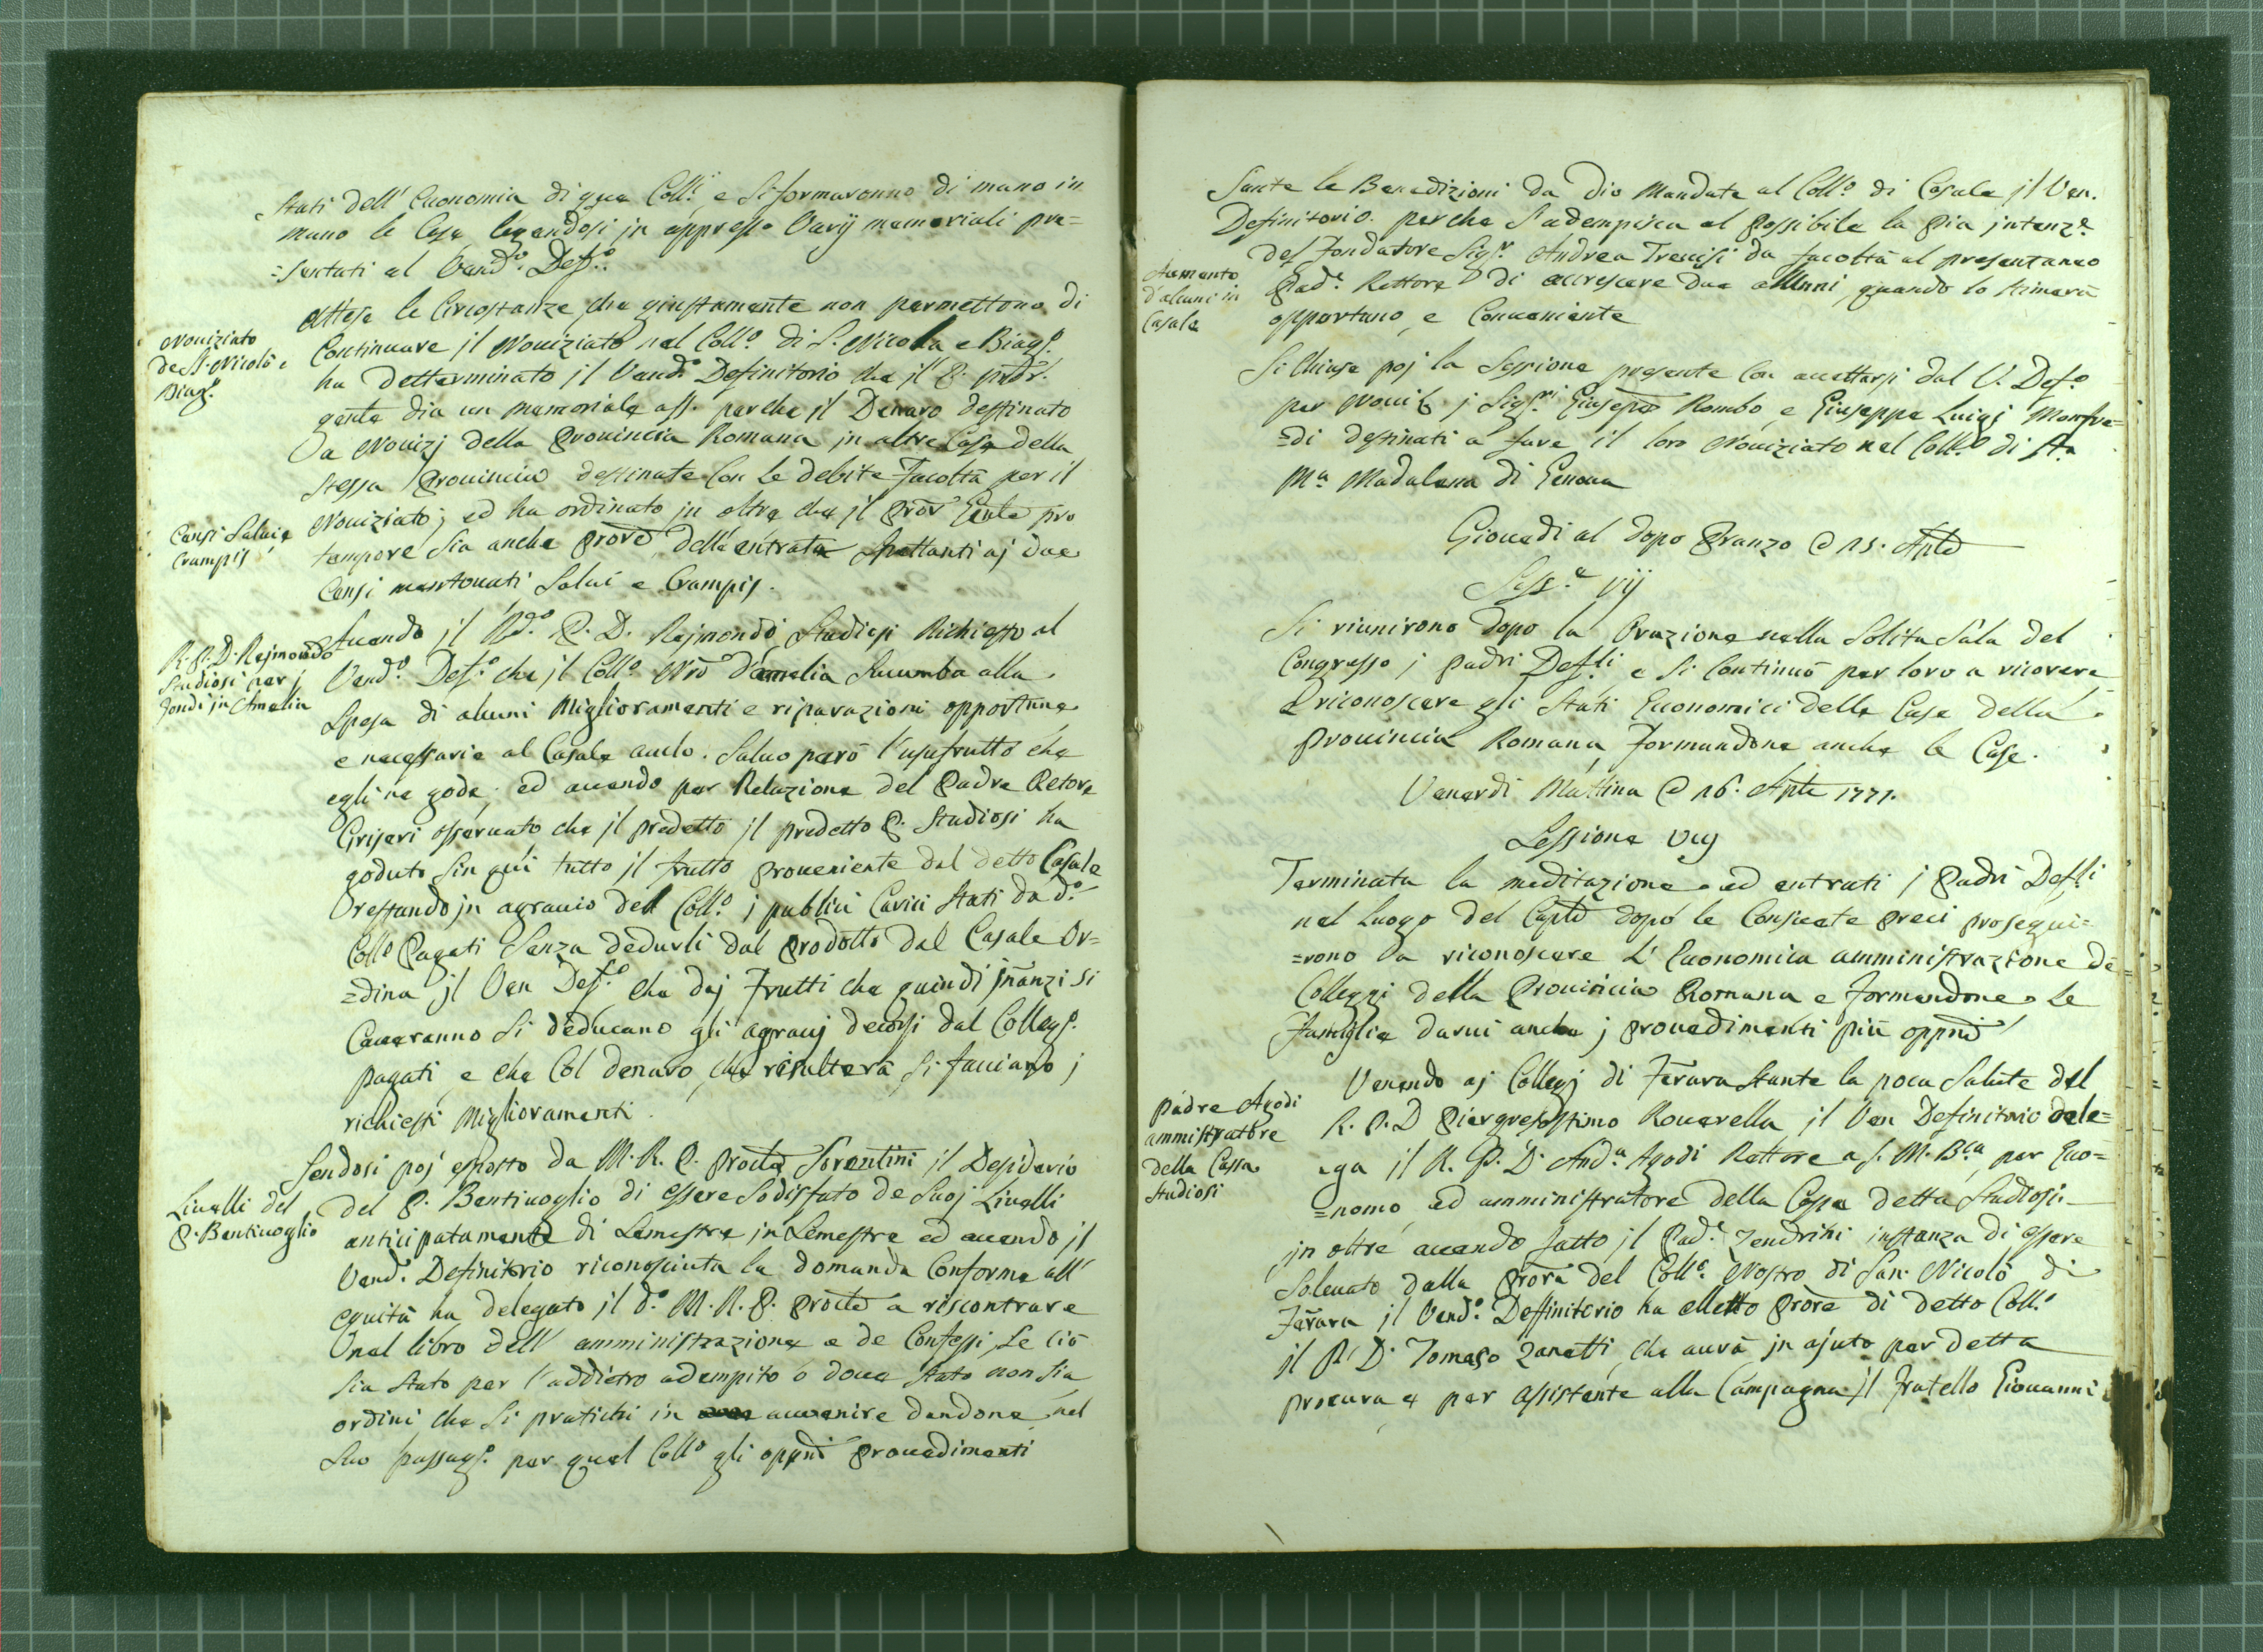 Stati dell' Economia di que Coll.i e si formaronno di mano in
mano le Case legendosi in appresso Varij memoriali pre=
=sentati al Vend.o Def.o
Nouiziato
de SS. Nicolò e
Biag.o
Attese le Circostanze che giustamente non permettono di
Continuare jl Nouiziato nel Coll.o di S. Nicola e Biag.o
ha detterminato jl Vend.o Definitorio che jl P.
gente dia un memoriale aff. perche jl Denaro destinato
a Nouizj della Prouincia Romana in altre Case della
stessa Prouincia destinate Con le debite Facoltà per il
Censi Salui e
Crampis
Nouiziato; ed ha ordinato in oltre che jl Pror Gnle pro
tempore sia anche Prore dell'entrate spettanti aj due
Censi mentouati Salui e Crampis.
R. P. D. Rejmondo
Studiosi per j
fondi jn Amelia
Auendo jl Rd.o P. D. Rejmondo Studiosi Richiesto al
Vend.o Def.o che jl Coll.o Nro d'amelia sucumba alla
spesa di alcuni Miglioramenti e riparazioni opportune
e necessarie al Casale auto. Saluo però l'usufrutto che
egli ne gode; ed auendo per Relazione del Padre Retore
Griseri osseruato che jl predetto jl predetto P. Studiosi ha
goduto sin quì tutto jl frutto proueniente dal detto Casale
restando jn agrauio del Coll.o j publici Carici stati da d.o
Coll.o Pagati senza dedurli dal prodotto dal Casale Or=
=dina jl Ven Def.o che dej Frutti che quindi jnanzi si
Caueranno si deducano gli agrauj decorsi dal Colleg.o
pagati, e che Col denaro, che risulterà, si facciano j
richiesti Miglioramenti.
Liuelli del
P. Bentiuoglio
Sendosi poj esposto da M. R. P. Procte Sorentini il Desiderio
del P. Bentiuoglio di essere Sodisfato de Suoj Liuelli
anticipatamente di Semestre jn Semestre ed auendo jl
Vend. Definitorio riconosciuta la domanda Conforme all'
equità ha delegato jl d.o M. R. P. Procte a riscontrare
nal libro dell' amministrazione e de Confessi, se ciò
sia stato per l'addietro adempito o doue stato non sia
ordini che si pratichi in auuenire dandone nel
suo passag.o per quel Coll.o gli oppni prouedimenti
Sante le Benedizioni da dio Mandate al Coll.o di Casale jl Ven.
Definitorio. perche s'adempisca al possibile la pia jntenz.e
Aumento
d'alcuni in
Casale
del Fondatore Sig.r Andrea Treuisi da facoltà al presentaneo
Pad.e Rettore di accrescere due allunni, quando lo stimerà
opportuno, e Conueniente
Si Chiuse poj la Sessione presente Con accettarsi dal V. Def.o
per Nouizi j Sig.ri Giuseppe Rombo, e Giuseppe Luigi Monfre=
=di destinati a fare il loro Nouiziato nel Coll.o di S.a
M.a Madalena di Genoua
Giouedi al dopo Pranzo @ 15. Aple
Sess.e vij
Si riunirono dopo la Orazione nella Solita Sala del
Congresso j Padri Def.li e si Continuò per loro a riceuere
e riconoscere gli Stati Economici delle Case della
Prouincia Romana, formandone anche le Case.
Venerdi Mattina @ 16. Aple 1771.
Sessione Viij
Terminata la meditazione ed entrati j Padri Def.li
nel Luogo del Caplo dopo le Consuete preci prosegui=
=rono a riconoscere l'Economica amministrazione de
Collegj della Prouincia Romana e formandone le
Famiglie darui anche j prouedimenti più oppni
Padre Agodi
ammistratore
della Cassa
Studiosi
Venendo aj Collegj di Ferara stante la poca Salute del
R. P. D Piergrisostimo Rouerella, jl Ven Definitorio dele=
=ga jl R. P. D. And.a Agodi Rettore a S. M. B.ca, per Eco=
=nomo, ed amministratore della Cassa detta Studiosi.
jn oltre auendo fatto jl Pad.e Zendrini instanza di essere
Soleuato dalla Prora del Coll.o Nostro di San Nicolò di
Ferara jl Vend.o Deffinitorio ha elletto Prore di detto Coll.o
jl P. D. Tomaso Zanetti, che aurà jn ajuto per detta
procura e per assistente alla Campagna jl fratello Giouanni